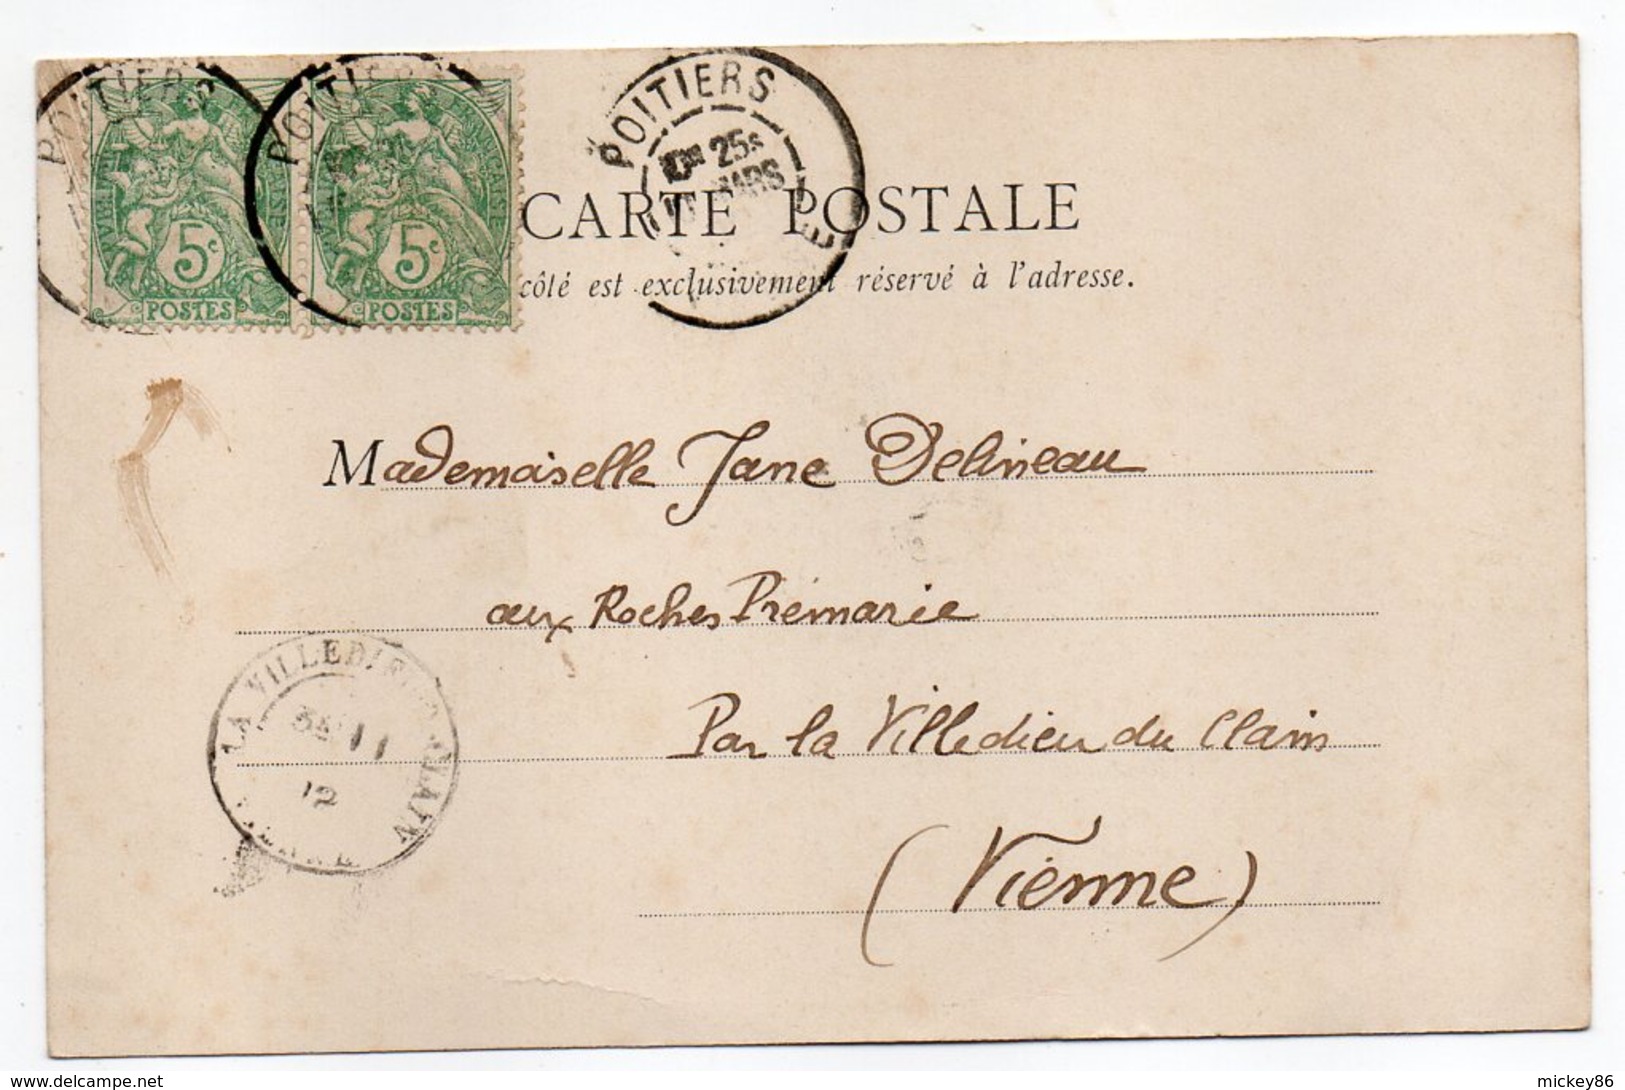 POITIERS
POITIERS
POITIERS
25s
MARS
5c
5c
POSTES
POSTES
CARTE POSTALE
côté est exclusivement réservé à l'adresse.
Mademaiselle Jane Delineau
aux Roches Prémarie
Par la Villedieu du Clain
(Vienne)
LA VILLEDIEU
CLAIN
12
https://www.delcampe.net
mickey86